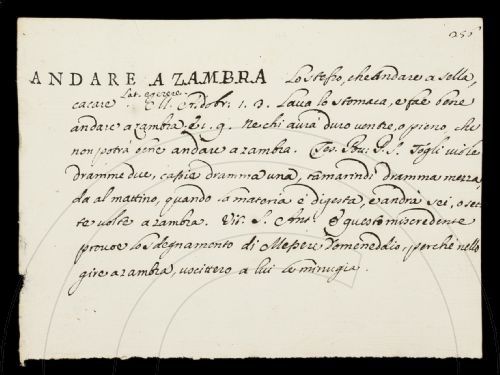 251
ANDARE A ZAMBRA Lo stesso, che andare a sella,
Lat. egerere.
cacare M. Aldobr. 1. 3. Lava lo stomaco, e fae bene
andare a zambra. E 1. 9. Ne chi aurà duro ventre, o pieno, che
non potrà bene andare a zambra. Tes. Pov. P. S. Togli viole
dramme due, cassie dramma una, tamarindi dramma mezza,
da al mattino, quando la materia è digesta, e andrà sei, o set-
te volte a zambra. Vit. S. Ant. E questo miscredente
provoe lo sdegnamento di Messere Domeneddio, perchè nello
gire a zambra, uscittero a lui le minugia.